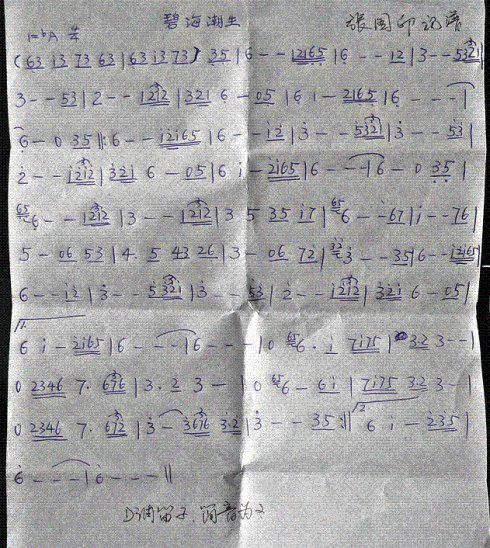 碧海潮生 张国印记谱
1=bA
(63 13 73 63|63 13 73) 35|6--12165|6--12|3--5321|
3--53|2--1212|321 6-05|6 1-2165|6---|
6-0 35‖:6--12165|6--12|3--5321|3--53|
2--1212|321 6-05|6 i-2165|6---|6-0 35|
656--1212|3--1212|3 5 35 17|656--67|i--76|
5-06 53|4. 5 43 26|3-06 72|3--35|6--12165|
6--12|3--5321|3--53|2--1212|321 6-05|
6 i-2165|6---|6---|0 656. i 7175|32 3--|
0 2346 7. 676|3. 2 3-|0 656-61|7175 3.2 3-|
0 2346 7. 672|3-3676 3.2|3--35:‖ 6 i-235|
6---|6---‖
D调笛子,筒音为2